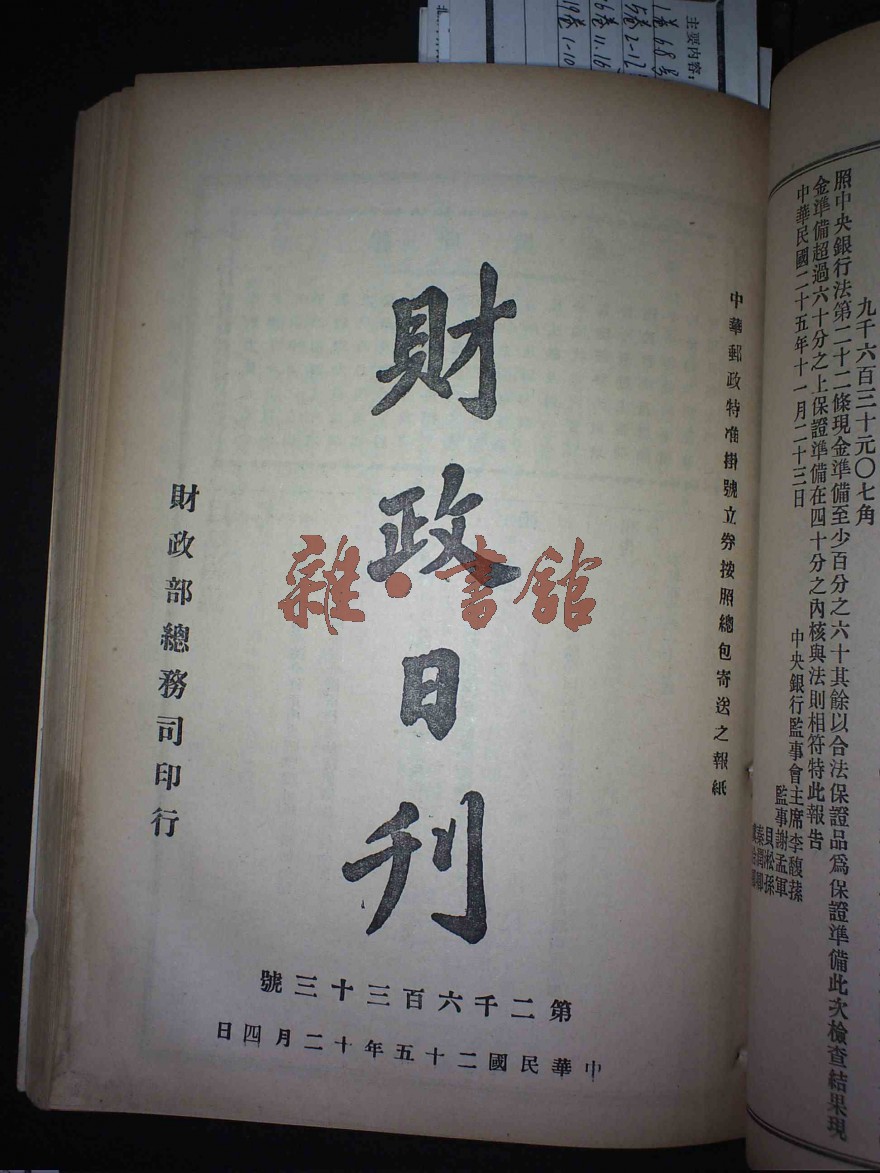 主要內容：
九千六百三十元〇七角
照中央銀行法第二十二條現金準備至少百分之六十其餘以合法保證品爲保證準備此次檢查結果現
金準備超過六十分之上保證準備在四十分之內核與法則相符特此報告
中華民國二十五年十一月二十三日
中央銀行監事會主席李馥蓀
監事謝孟軍
貝淞孫
中華郵政特准掛號立劵按照總包寄送之報紙
財政日刊
雜·書館
財政部總務司印行
第二千六百三十三號
中華民國二十五年十二月四日